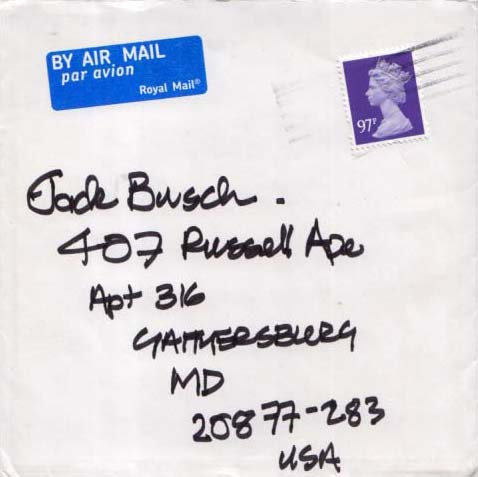 BY AIR MAIL
par avion
Royal Mail®
97P
Jack Busch.
407 Russell Ave
Apt 316
GAITHERSBURG
MD
20877-283
USA